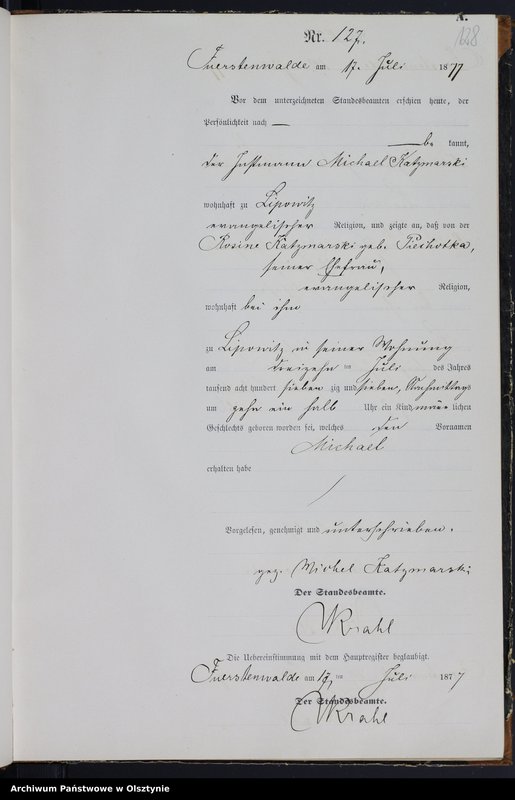 A.
128
Nr. 127.
Fuerstenwalde am 17. Juli 1877
Vor dem unterzeichneten Standesbeamten erschien heute, der
Persönlichkeit nach —
— be kannt,
der Instmann Michael Katzmarski
wohnhaft zu Lipowitz
evangelischer Religion, und zeigte an, daß von der
Rosine Katzmarski geb. Piechotka,
seiner Ehefrau,
evangelischer Religion,
wohnhaft bei ihm
zu Lipowitz in seiner Wohnung
am dreizehn ten Juli des Jahres
tausend acht hundert sieben zig und sieben, Nachmittags
um zehn ein halb Uhr ein Kind männ lichen
Geschlechts geboren worden sei, welches den Vornamen
Michael
erhalten habe
Vorgelesen, genehmigt und unterschrieben.
gez. Michel Katzmarski
Der Standesbeamte.
Krahl
Die Uebereinstimmung mit dem Hauptregister beglaubigt.
Fuerstenwalde am 17 ten Juli 1877
Der Standesbeamte.
Krahl
Archiwum Państwowe w Olsztynie